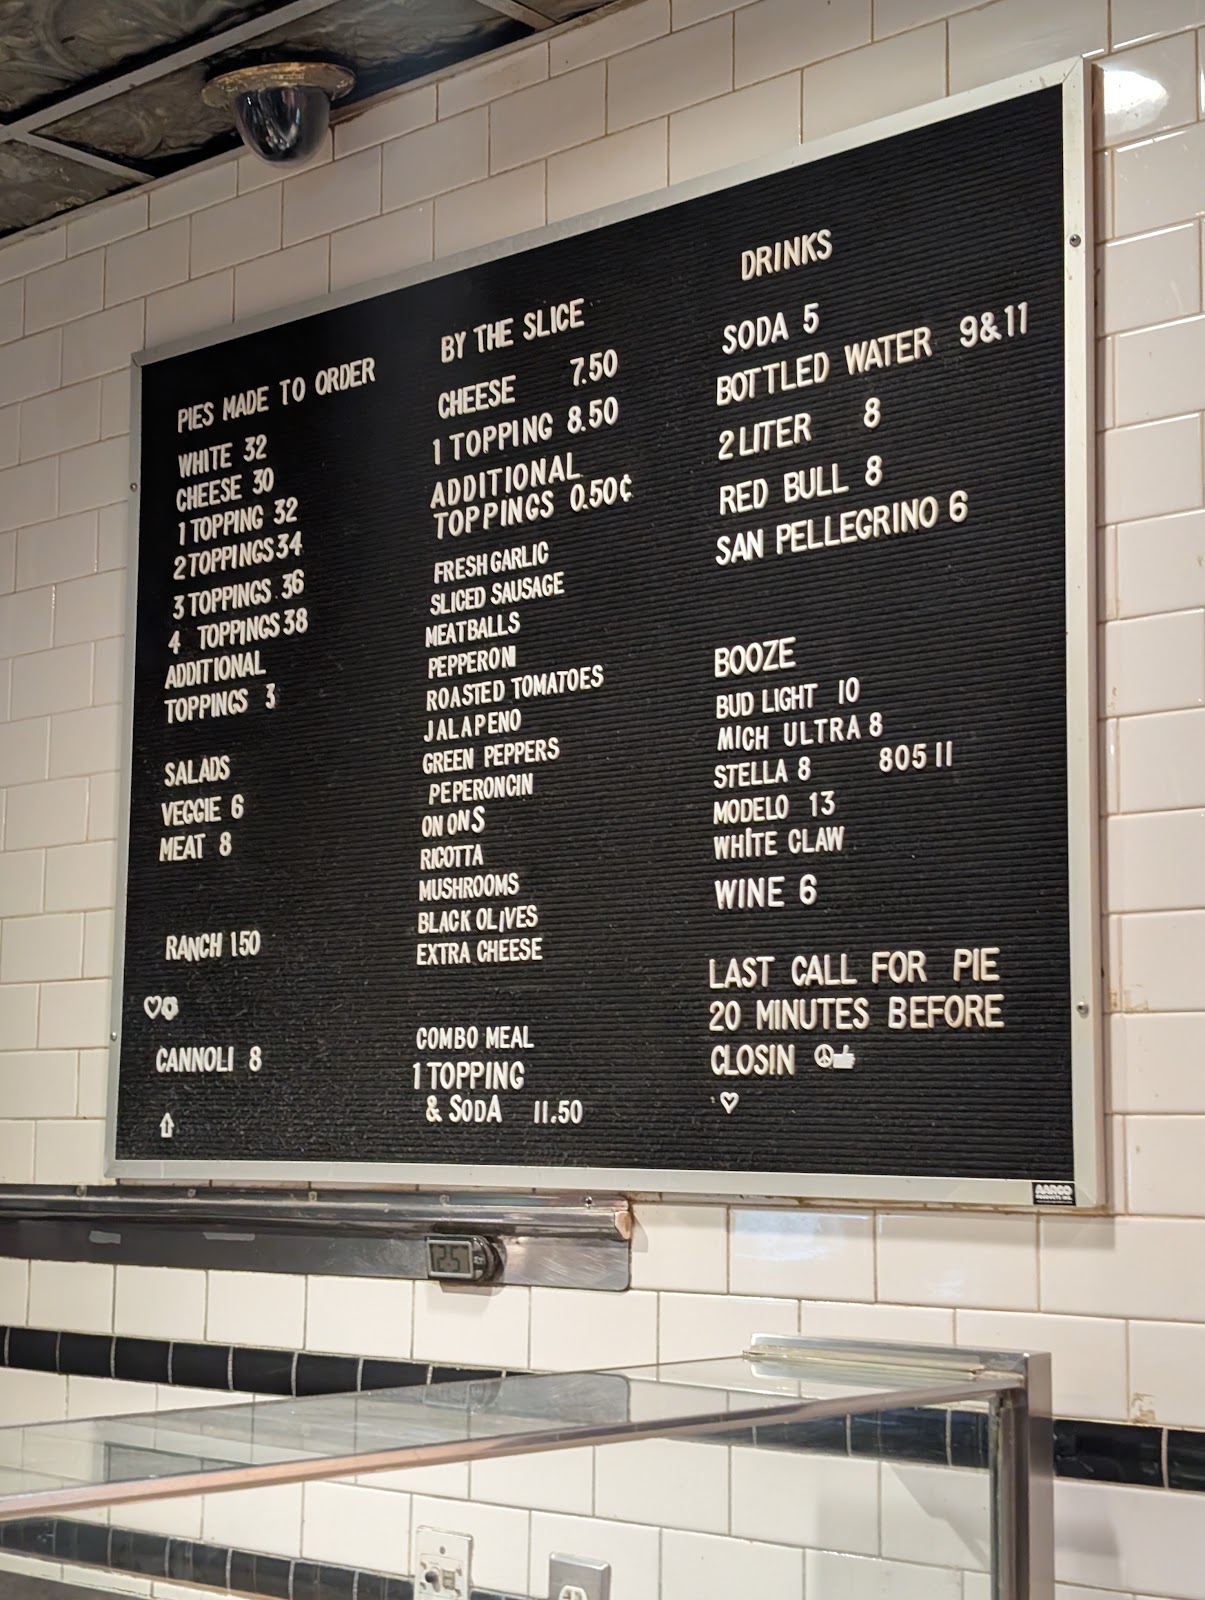 PIES MADE TO ORDER
WHITE 32
CHEESE 30
1 TOPPING 32
2 TOPPINGS 34
3 TOPPINGS 36
4 TOPPINGS 38
ADDITIONAL
TOPPINGS 3
SALADS
VEGGIE 6
MEAT 8
RANCH 1.50
CANNOLI 8
BY THE SLICE
CHEESE 7.50
1 TOPPING 8.50
ADDITIONAL
TOPPINGS 0.50¢
FRESH GARLIC
SLICED SAUSAGE
MEATBALLS
PEPPERONI
ROASTED TOMATOES
JALAPENO
GREEN PEPPERS
PEPERONCIN
ON ONS
RICOTTA
MUSHROOMS
BLACK OLIVES
EXTRA CHEESE
COMBO MEAL
1 TOPPING
& SODA 11.50
DRINKS
SODA 5
BOTTLED WATER 9&11
2 LITER 8
RED BULL 8
SAN PELLEGRINO 6
BOOZE
BUD LIGHT 10
MICH ULTRA 8
STELLA 8 805 11
MODELO 13
WHITE CLAW
WINE 6
LAST CALL FOR PIE
20 MINUTES BEFORE
CLOSIN
AARCO